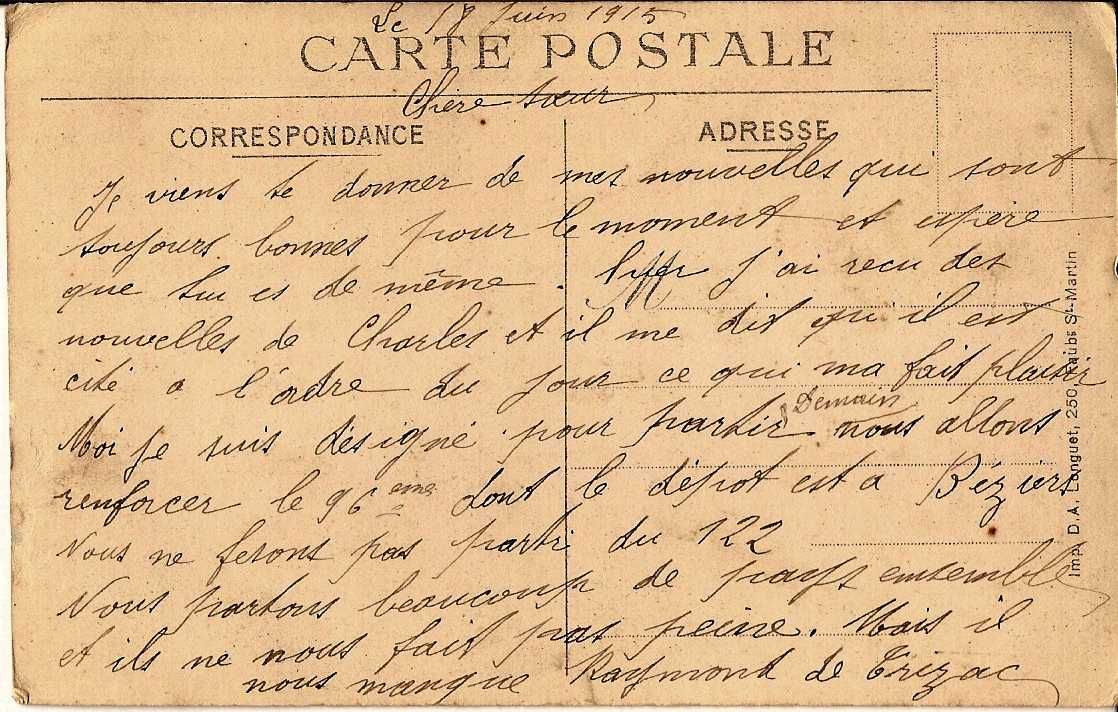 Le 18 Juin 1915
CARTE POSTALE
Chère sœur
CORRESPONDANCE
ADRESSE
Je viens te donner de mes nouvelles qui sont
toujours bonnes pour le moment et espère
que tu es de même. J'ai recu des
nouvelles de Charles et il me dit qu'il est
cité a l'ordre du jour ce qui ma fait plaisir
Moi je suis désigné pour partir Demain nous allons
renforcer le 96eme dont le dépot est a Béziers
Nous ne ferons pas parti du 122
Nous partons beaucoup de pays ensemble
et ils ne nous fait pas peine. Mais il
nous manque Raymond de Trizac
Imp. D.A. Longuet, 250, Faubg St-Martin